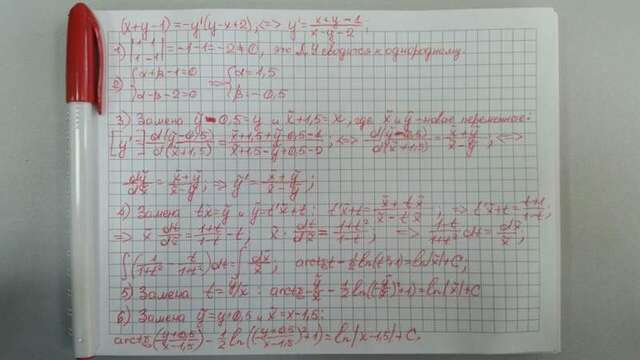 (x+y-1)=-y'(y-x+2), <=> y'=(x+y-1)/(x-y-2);
1) |1 1; 1 -1| = -1-1=-2≠0, это ДУ сводится к однородному.
2) {α+β-1=0; α-β-2=0 => {α=1,5; β=-0,5
3) Замена ỹ-0,5=y и x̃+1,5=x, где x̃ и ỹ - новые переменные:
[y'=] d(ỹ-0,5)/d(x̃+1,5) = (x̃+1,5+ỹ-0,5-1)/(x̃+1,5-ỹ+0,5-2); <=> d(ỹ-0,5)/d(x̃+1,5) = (x̃+ỹ)/(x̃-ỹ), <=>
dỹ/dx̃ = (x̃+ỹ)/(x̃-ỹ), => ỹ' = (x̃+ỹ)/(x̃-ỹ);
4) Замена tx̃=ỹ и ỹ'=t'x̃+t: t'x̃+t = (x̃+tx̃)/(x̃-tx̃); => t'x̃+t = (1+t)/(1-t);
=> x̃ dt/dx̃ = (1+t)/(1-t) - t, x̃· dt/dx̃ = (1+t²)/(1-t); => (1-t)/(1+t²) dt = dx̃/x̃;
∫(1/(1+t²) - t/(1+t²))dt = ∫dx̃/x̃, arctg t - 1/2 ln(t²+1) = ln|x̃|+C;
5) Замена t=ỹ/x̃: arctg ỹ/x̃ - 1/2 ln((ỹ/x̃)²+1) = ln|x̃|+C
6) Замена ỹ=y+0,5 и x̃=x-1,5:
arctg((y+0,5)/(x-1,5)) - 1/2 ln(((y+0,5)/(x-1,5))²+1) = ln|x-1,5|+C.